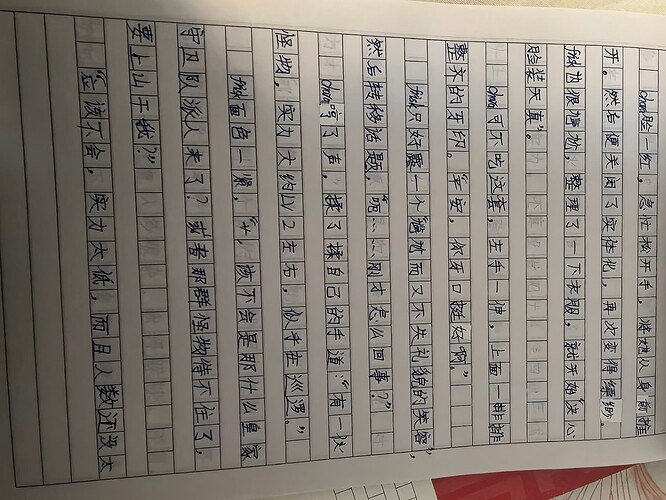 chara脸一红，急忙松开手，将她从身前推
开。然后便关闭了实体化，再次变得缥缈。
frisk也很尴尬，整理了一下衣服，就开始“决心
脸装天真”。
chara可不吃这套，左手一伸，上面一排排
整齐的牙印。“平安，你牙口挺好啊。”
frisk只好露一个“尴尬而又不失礼貌的笑容”，
然后转移话题。“呃……刚才怎么回事？”
chara哼了声，揉了揉自己的手道：“有一伙
怪物。实力大约LV2左右，似乎在巡逻。”
frisk面色一紧，“，该不会是那什么皇家
守卫队派人来了？或者那群怪物待不住了，
要上山干我？”
“应该不会，实力太低，而且人数还没太